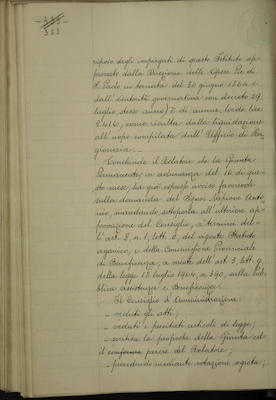 383
riposo degli impiegati di questo Istituto ap-
provato dalla Direzione delle Opere Pie di
S. Paolo in tornata del 30 giugno 1864 e
dall'Autorità governativa con decreto 29
luglio stesso anno) è di annue, lorde lire
2416, come risulta dalla liquidazione
all'uopo compilata dall'Ufficio di Ra-
gioneria. _
Conchiude il Relatore che la Giunta
Permanente, in adunanza del 16 di que-
sto mese, ha già espresso avviso favorevole
sulla domanda del Signor Nazione Anto-
nio, mandando sottoporla all'ulteriore ap-
provazione del Consiglio, a termini del-
l'art. 8, n. 1, lett. d, del vigente Statuto
organico, e della Commissione Provinciale
di Beneficenza, a mente dell'art. 3, lett. g,
della legge 18 luglio 1904, n. 390, sulla Pub-
blica assistenza e Beneficenza.
Il Consiglio d'Amministrazione:
_ veduti gli atti;
_ veduti i precitati articoli di legge;
_ sentita la proposta della Giunta ed
il conforme parere del Relatore;
_ procedendo mediante votazione segreta;